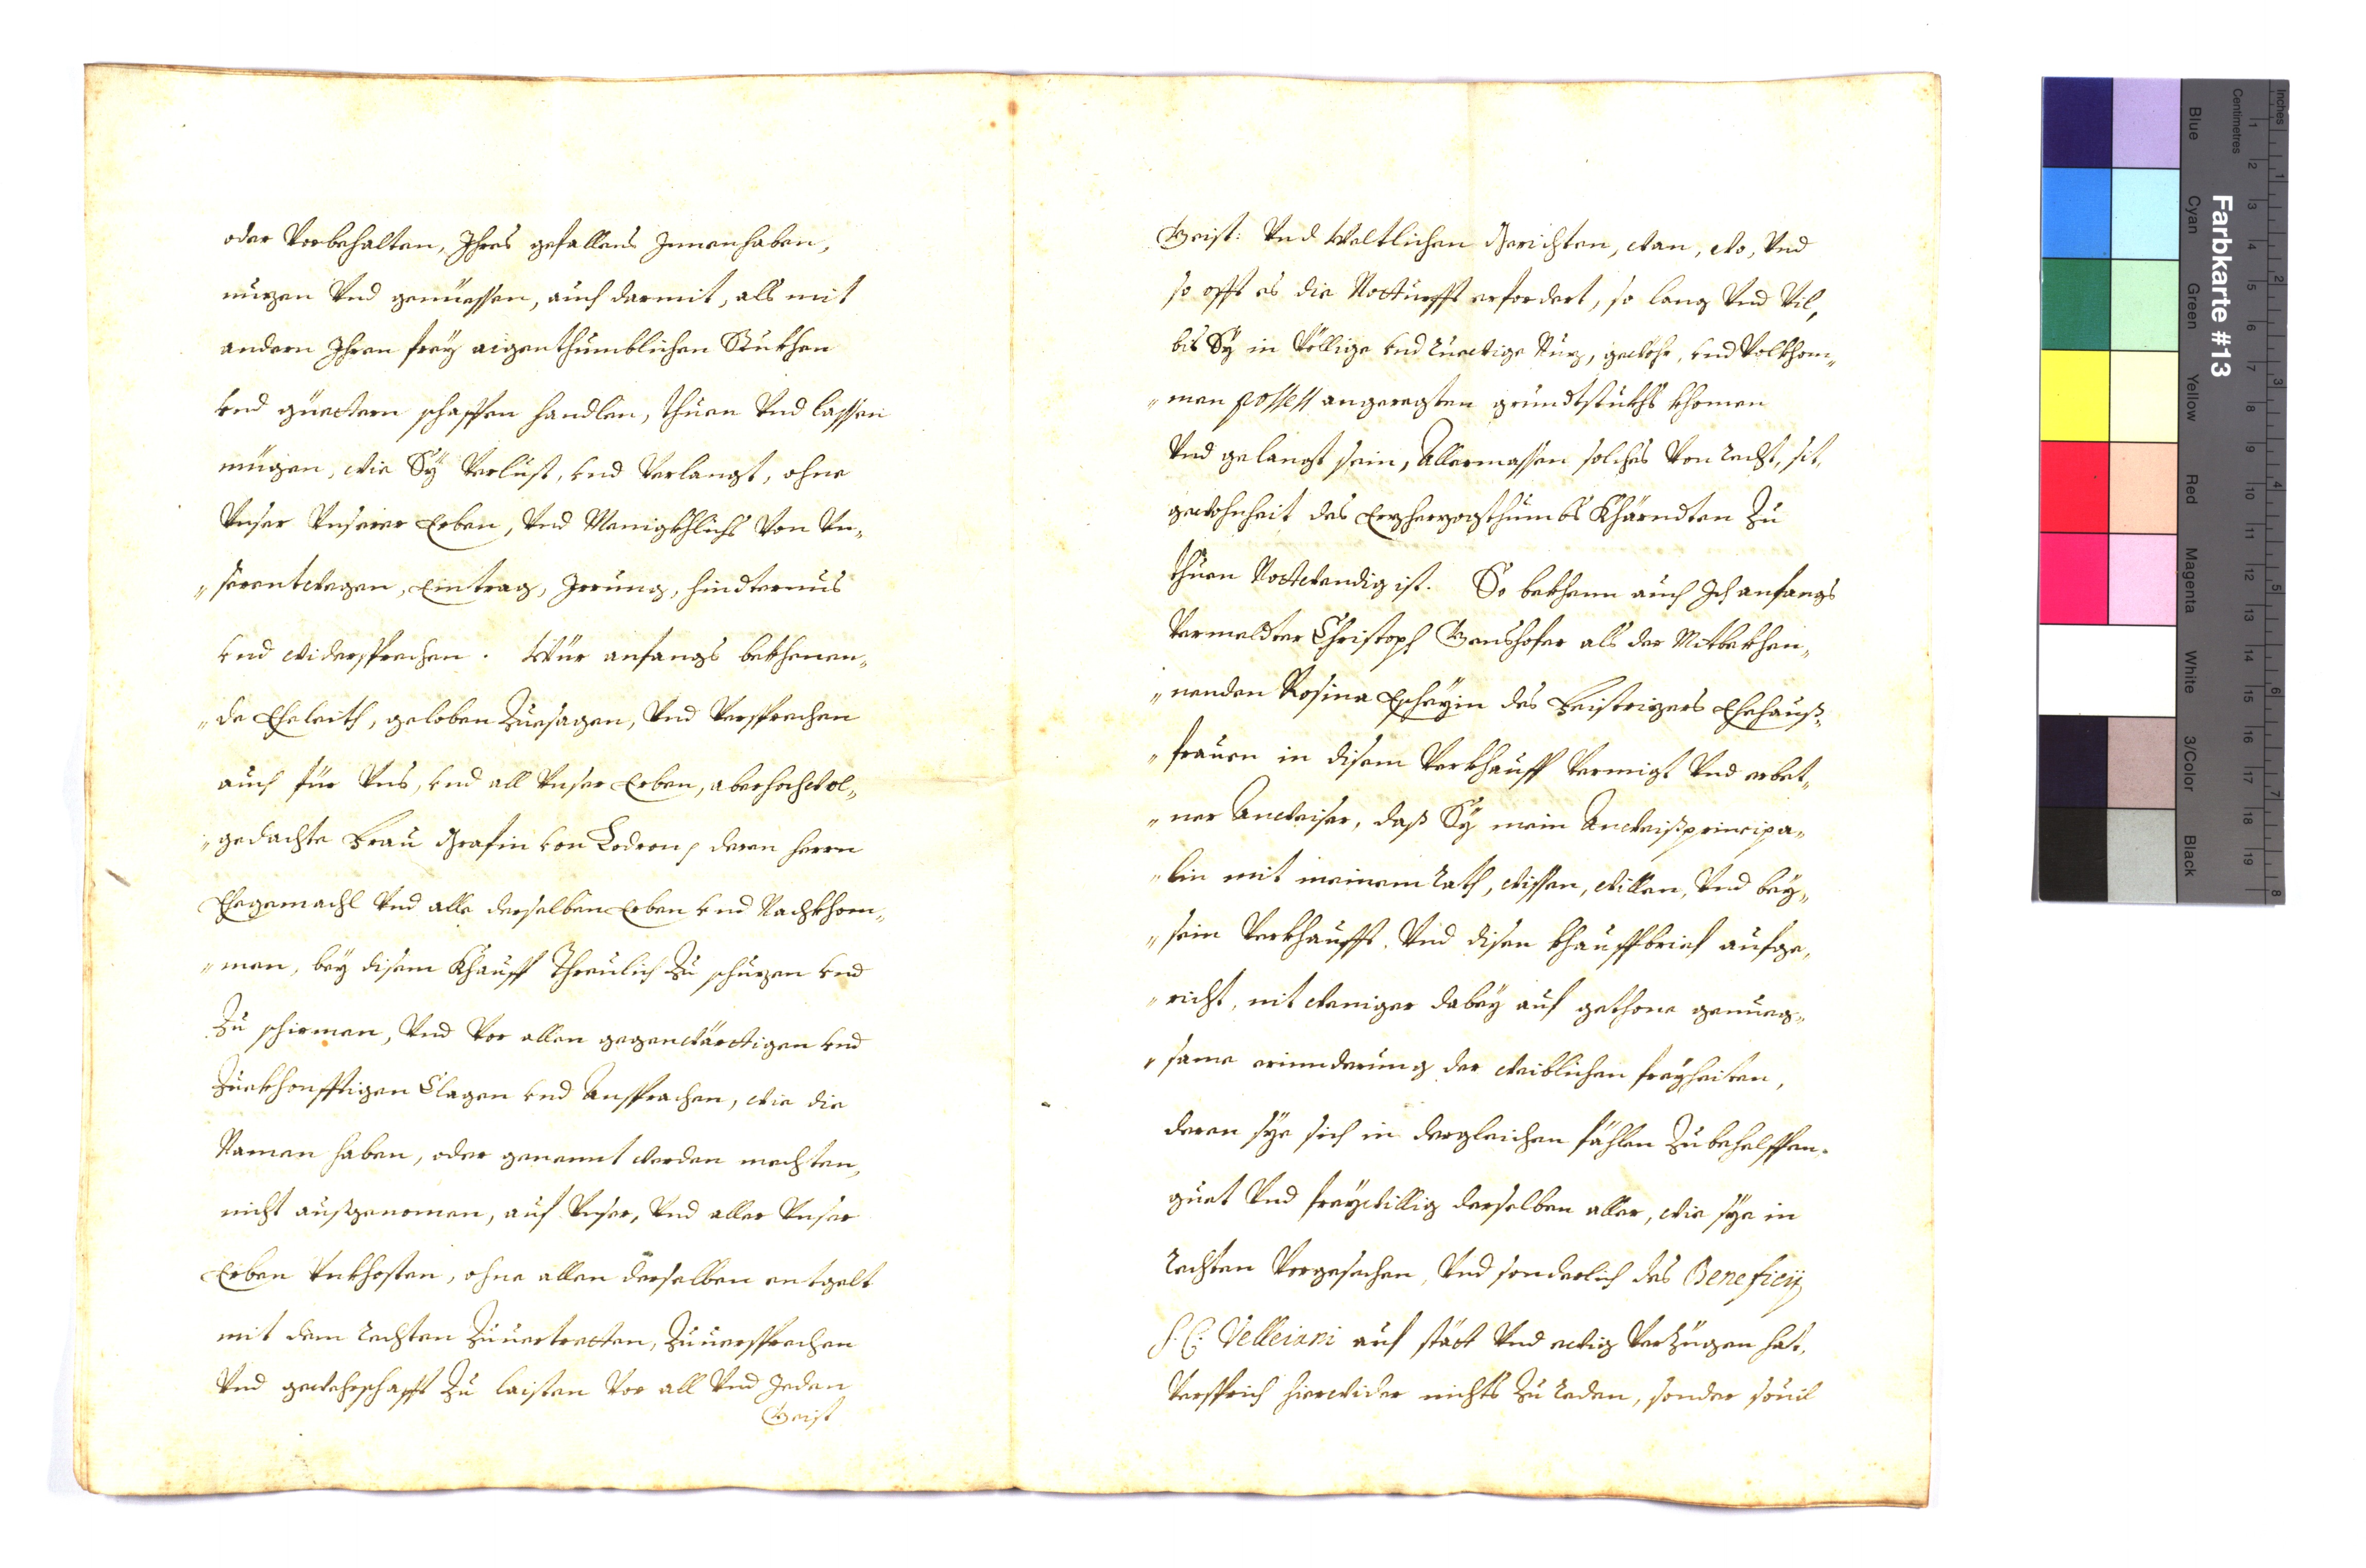 oder Vorbehalten, Ihres gefallens Innenhaben,
nuzen Vnd genüessen, auch darmit, als mit
andern Ihren freÿ aigenthumblichen Stukhen
vnd güettern schaffen handlen, thuen Vnd lassen
mügen, wie Sÿ Verlust, vnd Verlangt, ohne
Vnser Vnserer Erben, Vnd Menigkhlichs Von Vn„
„serentwegen, Eintrag, Irrung, hindternus
vnd widersprechen. Wür anfangs bekhenen„
„de Eheleith, geloben Zuesagen, Vnd Versprechen
auch für Vns, vnd all Vnser Erben, aberhochwol„
„gedachte Frau Grafin von Lodron, deren herrn
Ehegemachl Vnd alle derselben Erben vnd Nachkhom„
„men, beÿ disem Khauff Threulich Zu schuzen vnd
Zu schirmen, Vnd Vor allen gegenwärttigen vnd
Zuekhonfftigen Clagen vnd Ansprachen, wie die
Namen haben, oder genennt werden mechten,
nicht außgenomen, auf Vnser, Vnd aller Vnser
Erben Vnkhosten, ohne allen derselben entgelt
mit dem Rechten Zuuertretten, Zuuersprechen
Vnd gewehrschafft Zu laisten Vor all Vnd Jeden
Geist
Geist: Vnd Weltlichen Gerichten, wan, wo, Vnd
so offt es die Notturfft erfordert, so lang Vnd Vil,
bis Sÿ in Völlige vnd Ruewige Nuz, gewöhr, vnd Volkhom„
„men possess angeregten grundtstukhs khomen
Vnd gelangt sein, Allermassen solches Von Recht, sit,
gewohnheit des Erzherzogthumbs Khärndten Zu
thuen Nottwendig ist. So bekhenn auch Ich anfangs
Vermeldter Christoph Genshofer als der Mitbekhen„
„nenden Rosina Eschaÿin des Feistrizers Ehehauß„
„frauen in disem Verkhauff Vermigt Vnd erbet„
„ner Anweiser, daß Sÿ mein Anweißprincipa„
„lin mit meinem Rath, wissen, willen, Vnd beÿ„
„sein Verkhaufft. Vnd disen khauffbrief aufge„
„richt, nit weniger dabeÿ auf gethone genueg„
„same erinnderung der weiblichen freÿheiten,
deren sÿe sich in dergleichen fählen Zu behelffen.
guet Vnd freÿwillig derselben aller, wie sÿe in
Rechten Vorgesechen, Vnd sonderlich des Beneficij
S: C: Velleiani auf stätt Vnd ewig Verzügen hat,
Versprich hierwider nichts Zu Reden, sonder souil
Farbkarte #13
Blue
Cyan
Green
Yellow
Red
Magenta
White
3/Color
Black
Centimetres
1 2 3 4 5 6 7 8 9 10 11 12 13 14 15 16 17 18 19
Inches
1 2 3 4 5 6 7 8